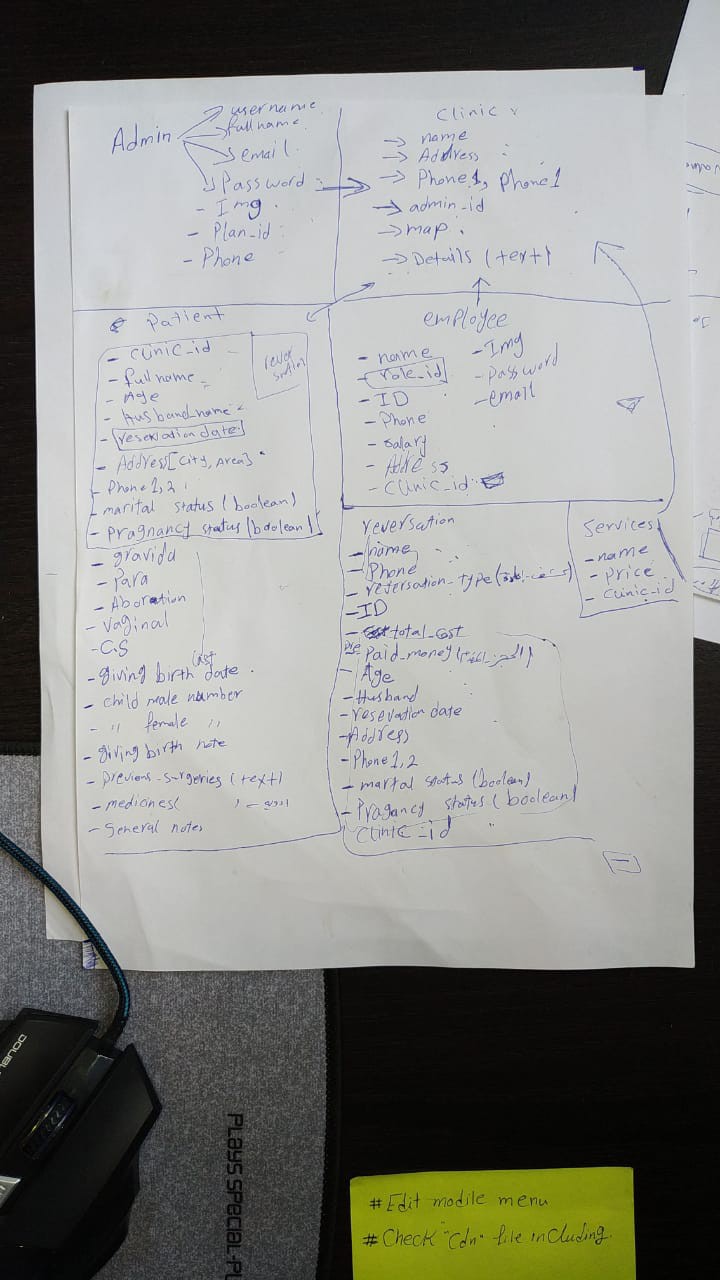 Admin
username
fullname
email
Password
- Img
- Plan_id
- Phone
Clinic
→ name
→ Address
→ Phone1, Phone1
→ admin_id
→ map
→ Details (text)
Patient
- Clinic_id
- full name
- Age
- Husband_name
- reservation date
- Address [City, Area]
- Phone 1,2
- marital status (boolean)
- Pragnancy status (boolean)
- gravida
- Para
- Aboration
- Vaginal
- C.S
- giving birth last date
- child male number
- " female "
- giving birth note
- Previous-surgeries (text)
- medicines(
- General notes
employee
- name
- role_id
- ID
- Phone
- salary
- Address
- Clinic_id
- Img
- password
- email
reversation
- name
- Phone
- reversation-type
- ID
- total_cost
Paid_money
Age
- Husband
- resevation date
- Address
- Phone 1,2
- marital status (boolean)
- Pragancy status (boolean)
Clinic_id
Services
- name
- Price
- Clinic_id
PLAYS SPECIAL-PL
# Edit modile menu
# Check "Cdn" file including.